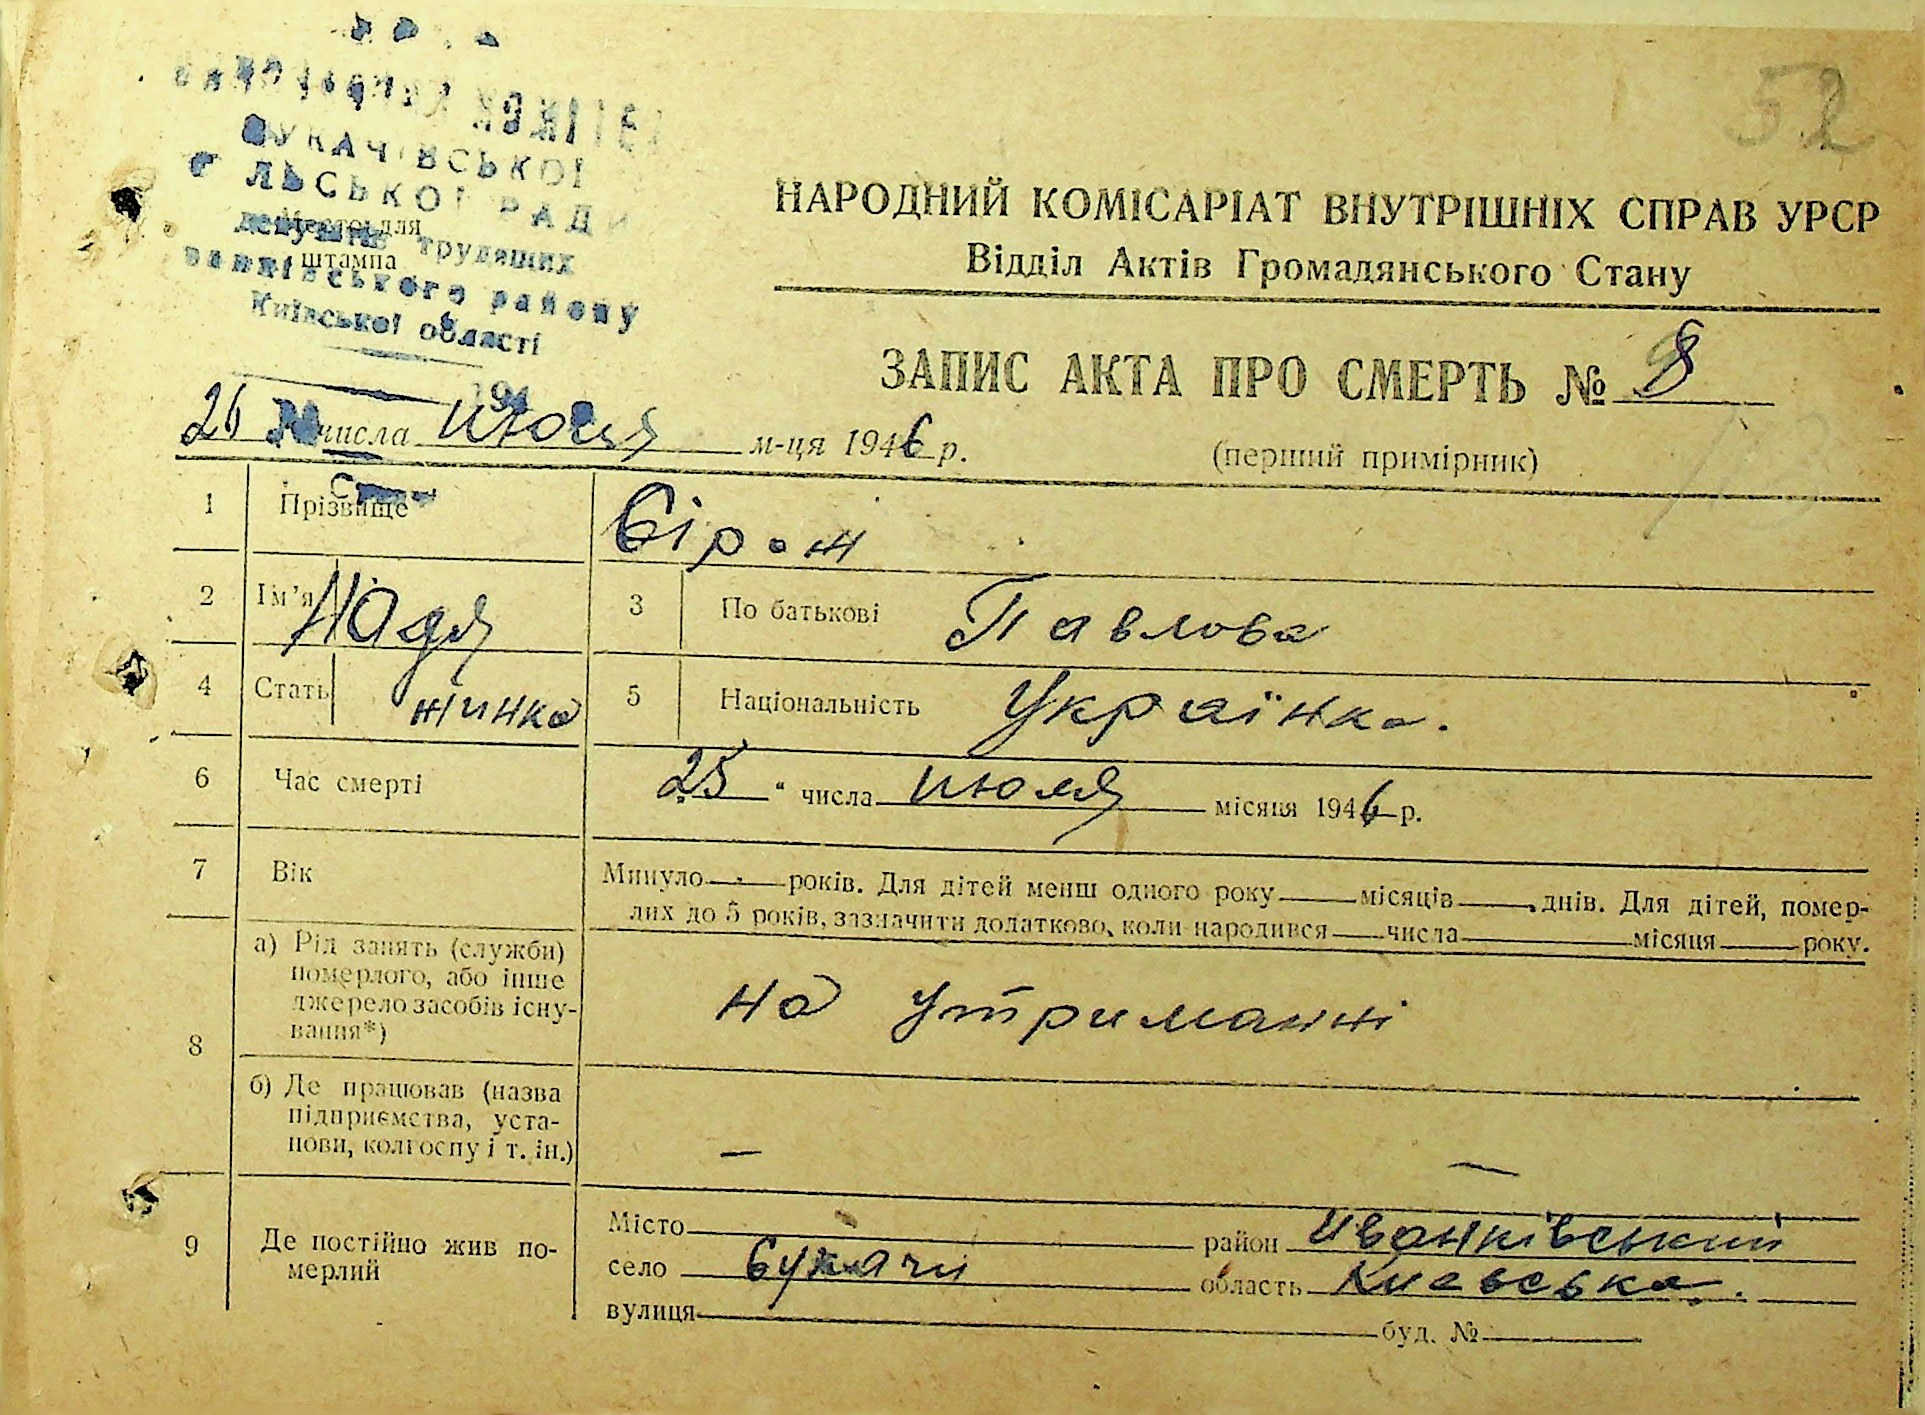 52
УКАЧІВСЬКОЇ
ЛЬСЬКОЇ РАДИ
трудящих
ванківського району
Київської області
194
Місце для
штампа
НАРОДНИЙ КОМІСАРІАТ ВНУТРІШНІХ СПРАВ УРСР
Відділ Актів Громадянського Стану
ЗАПИС АКТА ПРО СМЕРТЬ № 8
(перший примірник)
26 числа июля м-ця 1946 р.
1 Прізвище
2 Ім'я Надя 3 По батькові Павлова
4 Стать жинка 5 Національність Українка.
6 Час смерті 25 " числа июля місяця 1946 р.
7 Вік Минуло років. Для дітей менш одного року місяців днів. Для дітей, помер-
лих до 5 років, зазначити додатково, коли народився числа місяця року.
8 а) Рід занять (служби)
померлого, або інше
джерело засобів існу-
вання*)
на утриманні
б) Де працював (назва
підприємства, уста-
нови, колгоспу і т. ін.)
— —
9 Де постійно жив по-
мерлий
Місто район Иванківський
село Букачи область Киевська.
вулиця буд. №